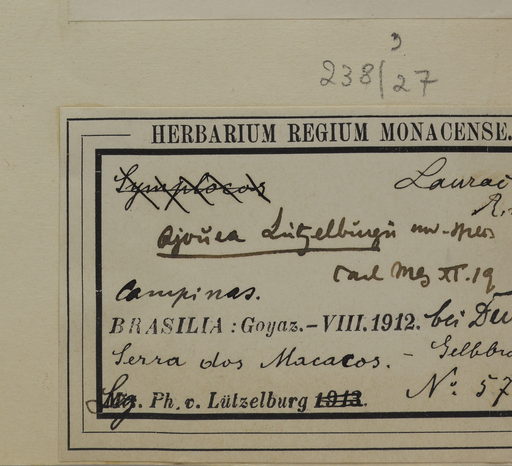 238/27
HERBARIUM REGIUM MONACENSE.
Symplocos Laurac
Ajouea Lützelburgii
Carl Mez XI. 19
Campinas.
BRASILIA: Goyaz.-VIII. 1912. bei
Serra dos Macacos. -
Leg. Ph. v. Lützelburg 1913. No. 57